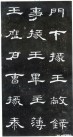 門下掾王敞錄
事掾王畢主薄
王歷户曹掾秦